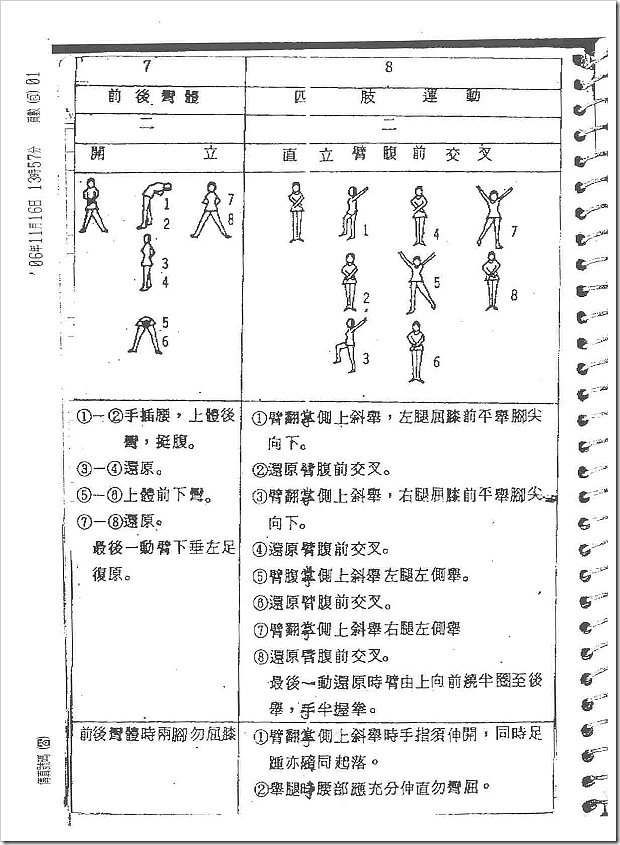 '06年11月16日 13時57分
頁數 01
傳真號碼
7
前後彎體
二
開立
1
2
7
8
3
4
5
6
①-②手插腰，上體後
彎，挺腹。
③-④還原。
⑤-⑥上體前下彎。
⑦-⑧還原。
最後一動臂下垂左足
復原。
前後彎體時兩腳勿屈膝
8
四肢運動
二
直立臂腹前交叉
1
4
7
2
5
8
3
6
①臂翻掌側上斜舉，左腿屈膝前平舉腳尖
向下。
②還原臂腹前交叉。
③臂翻掌側上斜舉，右腿屈膝前平舉腳尖
向下。
④還原臂腹前交叉。
⑤臂腹掌側上斜舉左腿左側舉。
⑥還原臂腹前交叉。
⑦臂翻掌側上斜舉右腿左側舉
⑧還原臂腹前交叉。
最後一動還原時臂由上向前繞半圈至後
舉，手半握拳。
①臂翻掌側上斜舉時手指須伸開，同時足
踵亦隨同起落。
②舉腿時腰部應充分伸直勿彎屈。